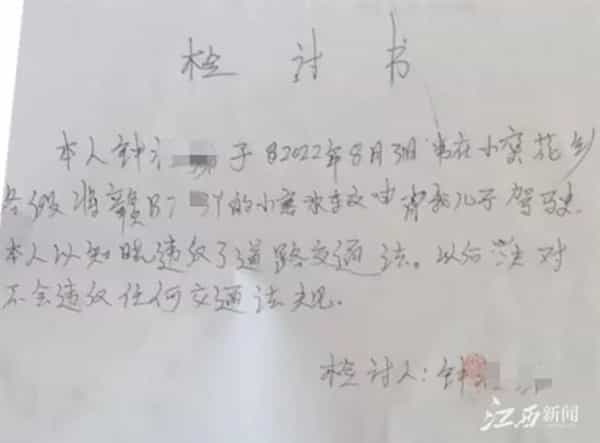 检讨书
本人钟 于2022年8月3日 在小
将赣B7 Y的小客 车交由 我儿子驾驶
本人以知 违反了道路交通法。以后 对
不会违反任何交通法规。
检讨人:钟
江西新闻